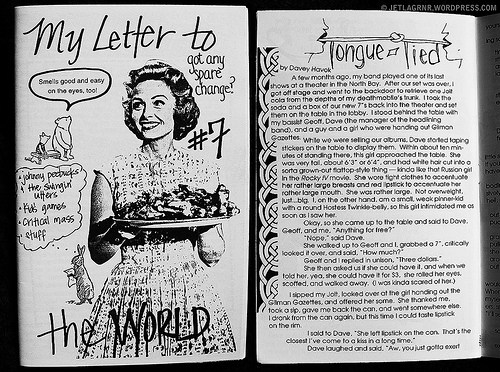 © JETLAGRNR.WORDPRESS.COM
My Letter to
got any
spare
change?
Smells good and easy
on the eyes, too!
#7
the WORLD
Tongue Tied
by Davey Havok
A few months ago, my band played one of its last
shows at a theater in the North Bay. After our set was over, I
got off stage and went to the backdoor to retrieve one Jolt
cola from the depths of my deathmobile's trunk. I took the
soda and a box of our new 7"s back into the theater and set
them on the table in the lobby. I stood behind the table with
my bassist Geoff, Dave (the manager of the headlining
band), and a guy and a girl who were handing out Gilman
Gazettes.
While we were selling our albums, Dave started taping
stickers on the table to display them. Within about ten min-
utes of standing there, this girl approached the table. She
was very tall, about 6'3" or 6'4", and had white hair cut into a
sorta grown-out flattop-style thing — kinda like that Russian girl
in the Rocky IV movie. She wore tight clothes to accentuate
her rather large breasts and red lipstick to accentuate her
rather large mouth. She was rather large. Not overweight,
just...big. I, on the other hand, am a small, weak pinner-kid
with a round Hostess Twinkie-belly, so this girl intimidated me as
soon as I saw her.
Okay, so she came up to the table and said to Dave,
Geoff, and me, "Anything for free?"
"Nope," said Dave.
She walked up to Geoff and I, grabbed a 7", critically
looked it over, and said, "How much?"
Geoff and I replied in unison, "Three dollars."
She then asked us if she could have it, and when we
told her, yea, she could have it for $3, she rolled her eyes,
scoffed, and walked away. (I was kinda scared of her.)
I sipped my Jolt, looked over at the girl handing out the
Gilman Gazettes, and offered her some. She thanked me,
took a sip, gave me back the can, and went somewhere else.
I drank from the can again, but this time I could taste lipstick
on the rim.
I said to Dave, "She left lipstick on the can. That's the
closest I've come to a kiss in a long time."
Dave laughed and said, "Aw, you just gotta exert
• johnny peebucks
& the swingin'
utters
• Kids games
• critical mass
stuff